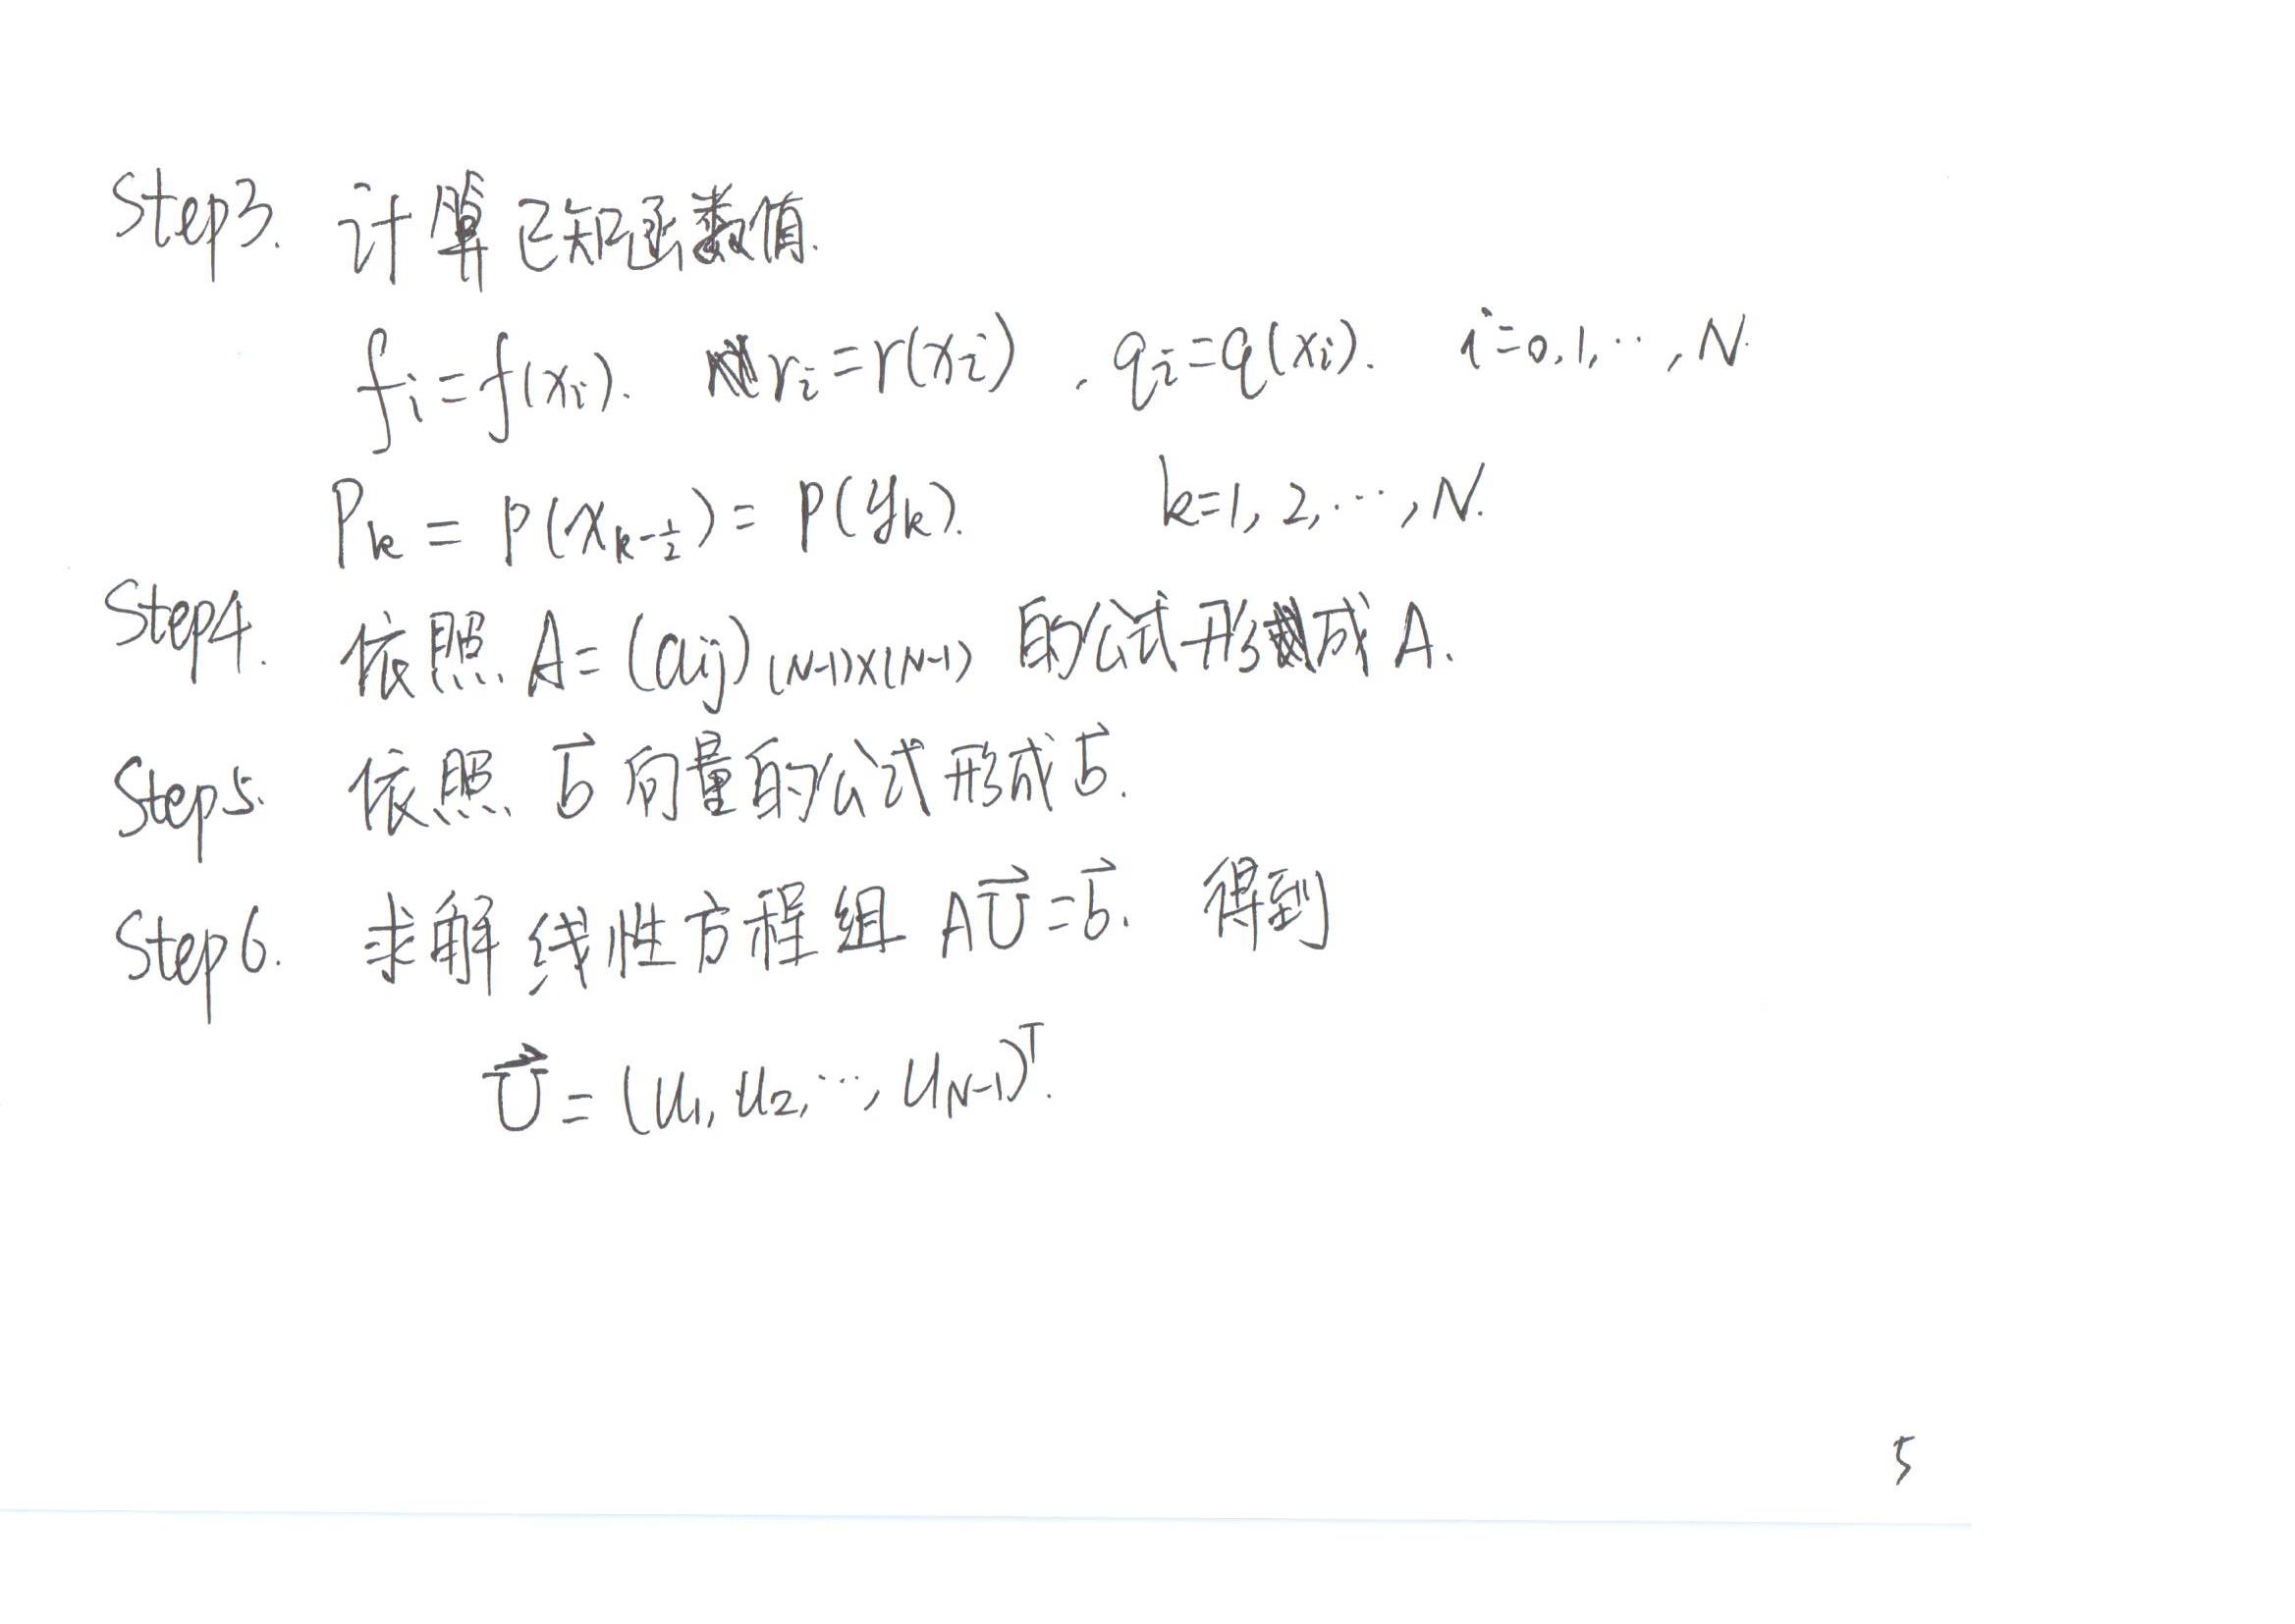 Step3. 计算已知函数值.
fi=f(xi). ri=r(xi), qi=q(xi). i=0,1,⋯,N.
Pk=p(x_{k-1/2})=p(yk). k=1,2,⋯,N.
Step4. 依照 A=(aij)(N-1)×(N-1) 的公式形成A.
Step5. 依照 b⃗ 向量的公式形成b⃗.
Step6. 求解线性方程组 AU⃗=b⃗. 得到
U⃗=(u1,u2,⋯,uN-1)^T.
5